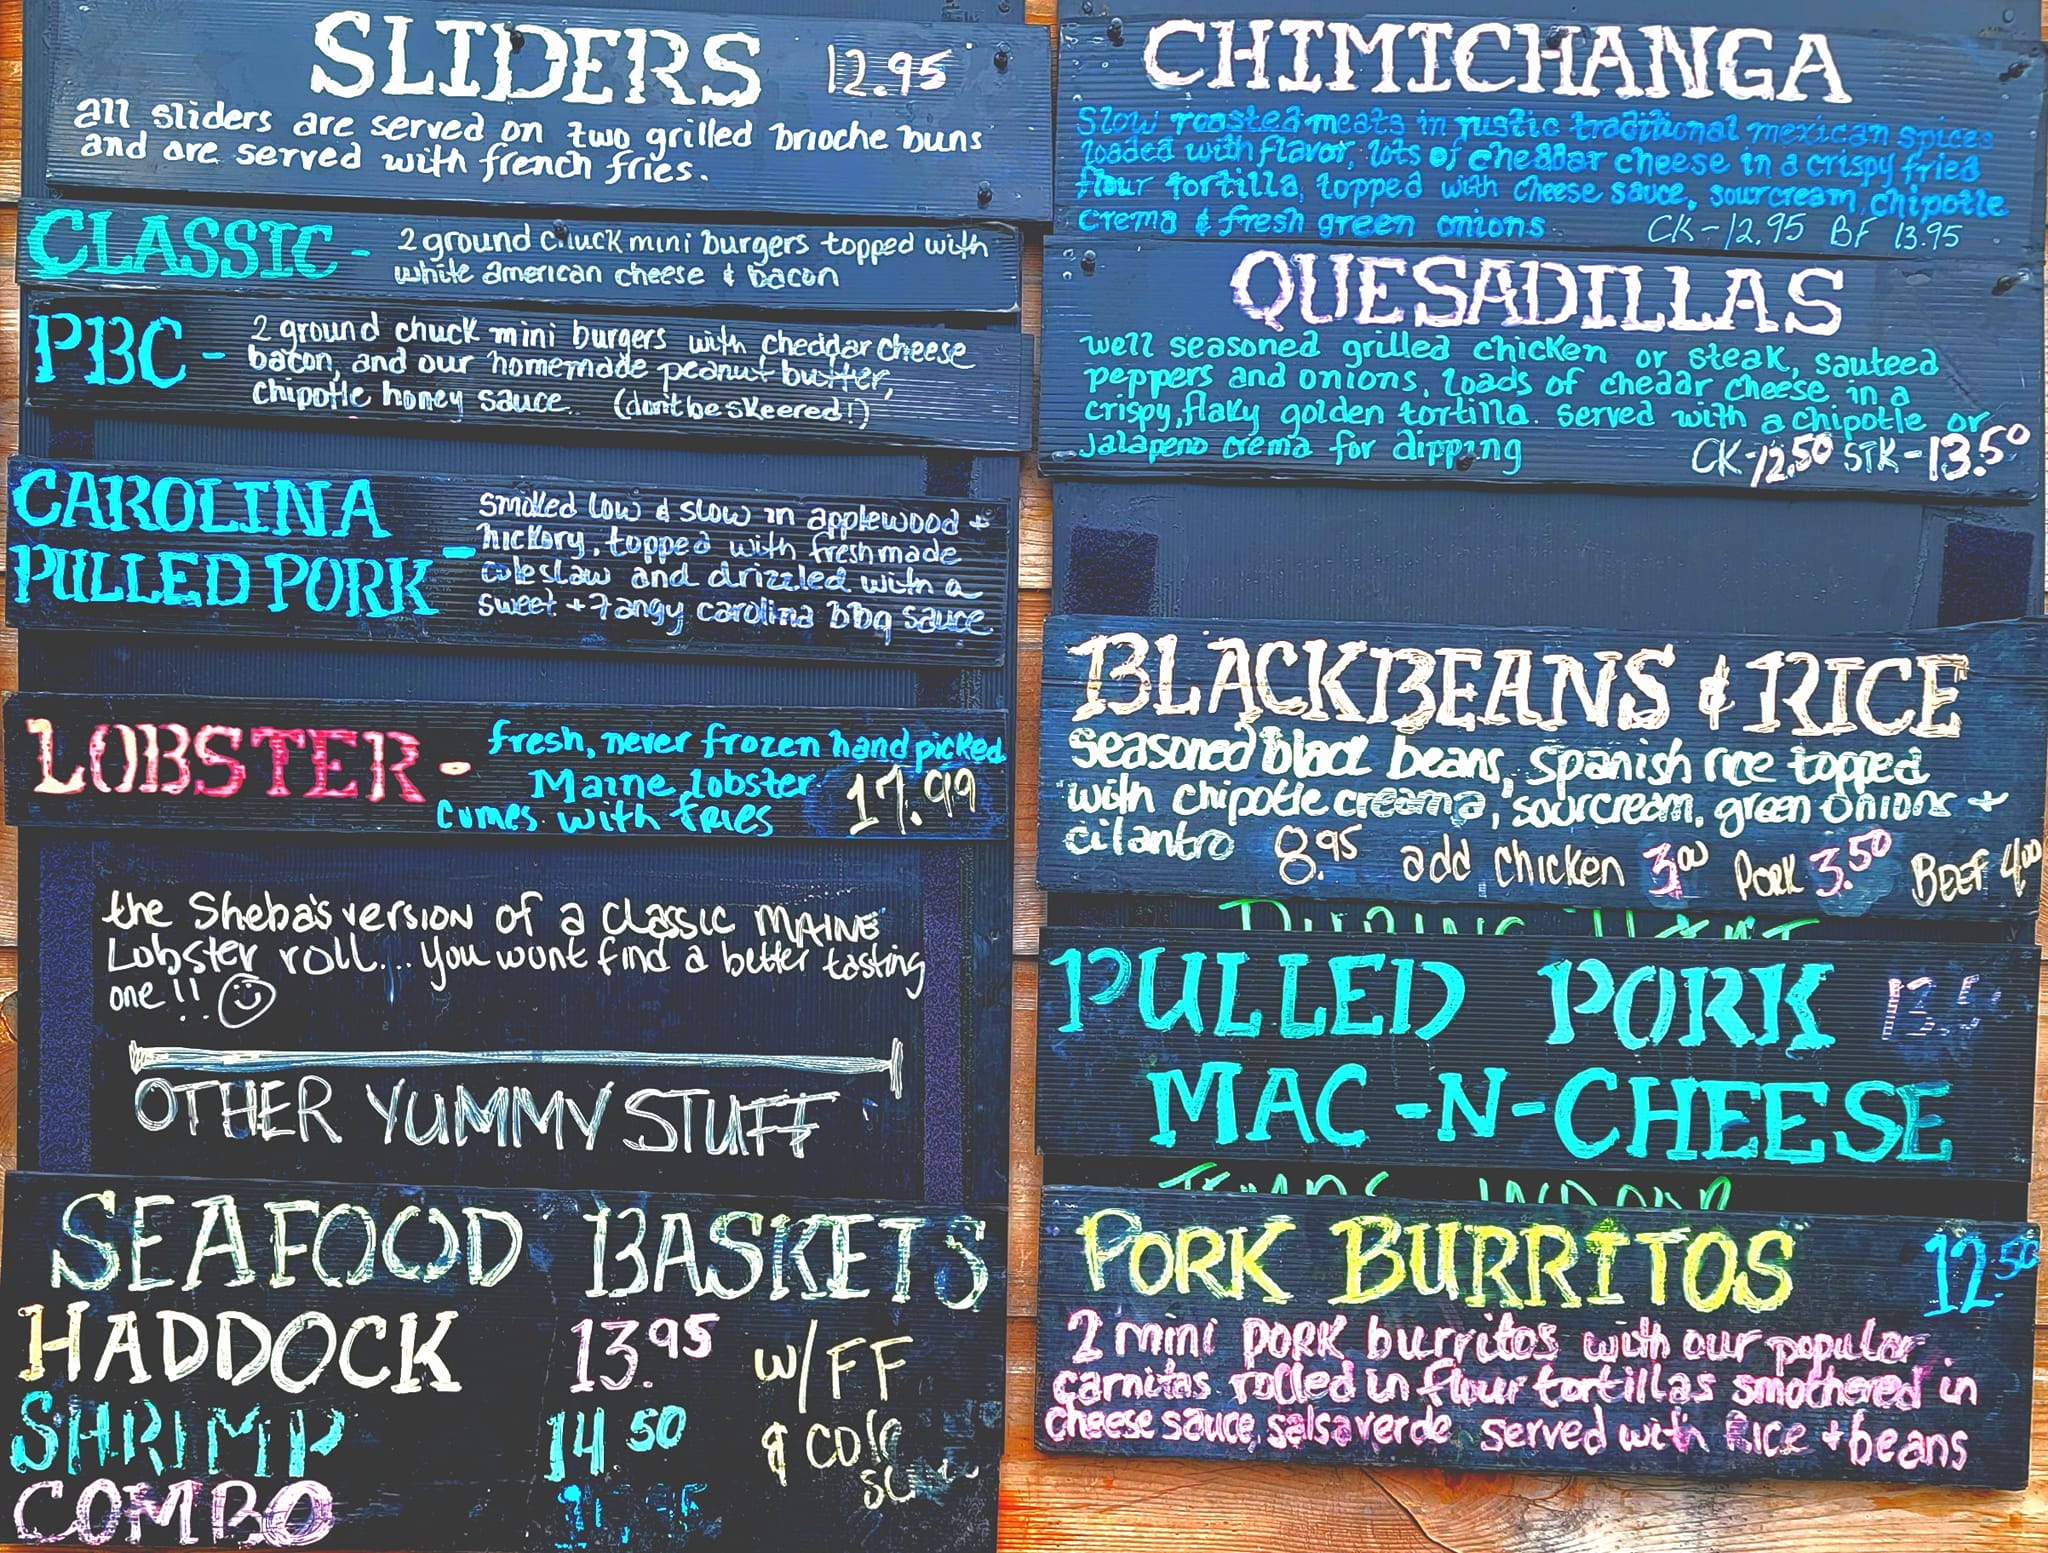 SLIDERS 12.95
all sliders are served on two grilled brioche buns
and are served with french fries.
CLASSIC - 2 ground chuck mini burgers topped with
white american cheese & bacon
PBC - 2 ground chuck mini burgers with cheddar cheese
bacon, and our homemade peanut butter,
chipotle honey sauce. (don't be skeered!)
CAROLINA
PULLED PORK - smoked low & slow in applewood +
hickory, topped with fresh made
coleslaw and drizzled with a
sweet + tangy carolina bbq sauce
LOBSTER - fresh, never frozen hand picked
Maine lobster 17.99
comes with fries
the Sheba's version of a classic MAINE
Lobster roll... you wont find a better tasting
one!!
OTHER YUMMY STUFF
SEAFOOD BASKETS
HADDOCK 13.95 w/FF
SHRIMP 14.50 & cole
COMBO
CHIMICHANGA
Slow roasted meats in rustic traditional mexican spices
loaded with flavor, lots of cheddar cheese in a crispy fried
flour tortilla, topped with cheese sauce, sourcream, chipotle
crema & fresh green onions. CK-12.95 BF 13.95
QUESADILLAS
well seasoned grilled chicken or steak, sauteed
peppers and onions, loads of cheddar cheese in a
crispy, flaky golden tortilla. served with a chipotle or
jalapeno crema for dipping CK-12.50 STK-13.50
BLACKBEANS & RICE
seasoned black beans, spanish rice topped
with chipotle creama, sourcream, green onions +
cilantro 8.95 add chicken 3.00 Pork 3.50 BEEF 4.00
PULLED PORK
MAC-N-CHEESE
PORK BURRITOS 12.50
2 mini PORK burritos with our popular
carnitas rolled in flour tortillas smothered in
cheese sauce, salsa verde served with Rice + beans